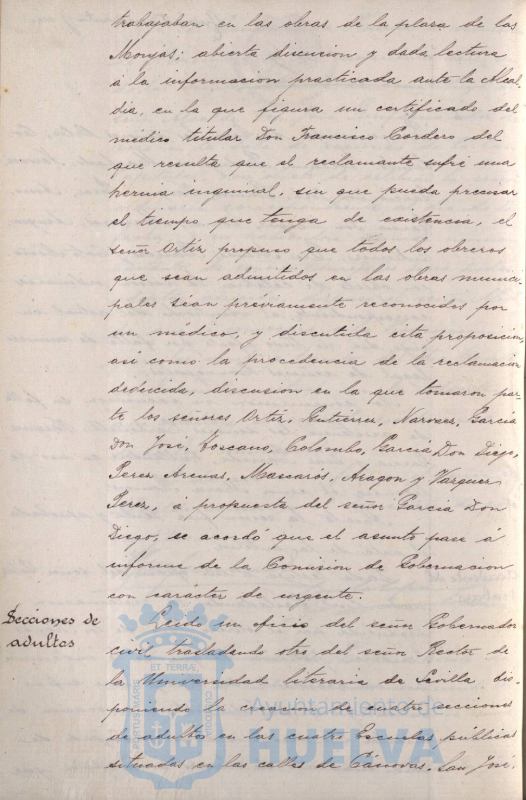 trabajaban en las obras de la plaza de las
Monjas; abierta discusion y dada lectura
á la informacion practicada ante la Alcal-
dia, en la que figura un certificado del
médico titular Don Francisco Cordero del
que resulta que el reclamante sufre una
hernia inguinal, sin que pueda precisar
el tiempo que tenga de existencia, el
señor Ortíz propuso que todos los obreros
que sean admitidos en las obras munici-
pales sean préviamente reconocidos por
un médico, y discutida esta proposicion,
asi como la procedencia de la reclamacion
deducida, discusion en la que tomaron par-
te los señores Ortíz, Gutierrez, Narvaez, García
Don José, Toscano, Colombo, García Don Diego,
Perez Arenas, Mascarós, Aragon y Vazquez
Perez, á propuesta del señor García Don
Diego, se acordó que el asunto pase á
informe de la Comision de Gobernacion
con carácter de urgente.
Secciones de
adultos
Leido un oficio del señor Gobernador
civil trasladando otro del señor Rector de
la Universidad literaria de Sevilla dis-
poniendo la creacion de cuatro secciones
de adultos en las cuatro Escuelas públicas
situadas en las calles de Cánovas, San José,
PORTUS MARIS
ET TERRÆ
CUSTODIA
Ayuntamiento de
HUELVA